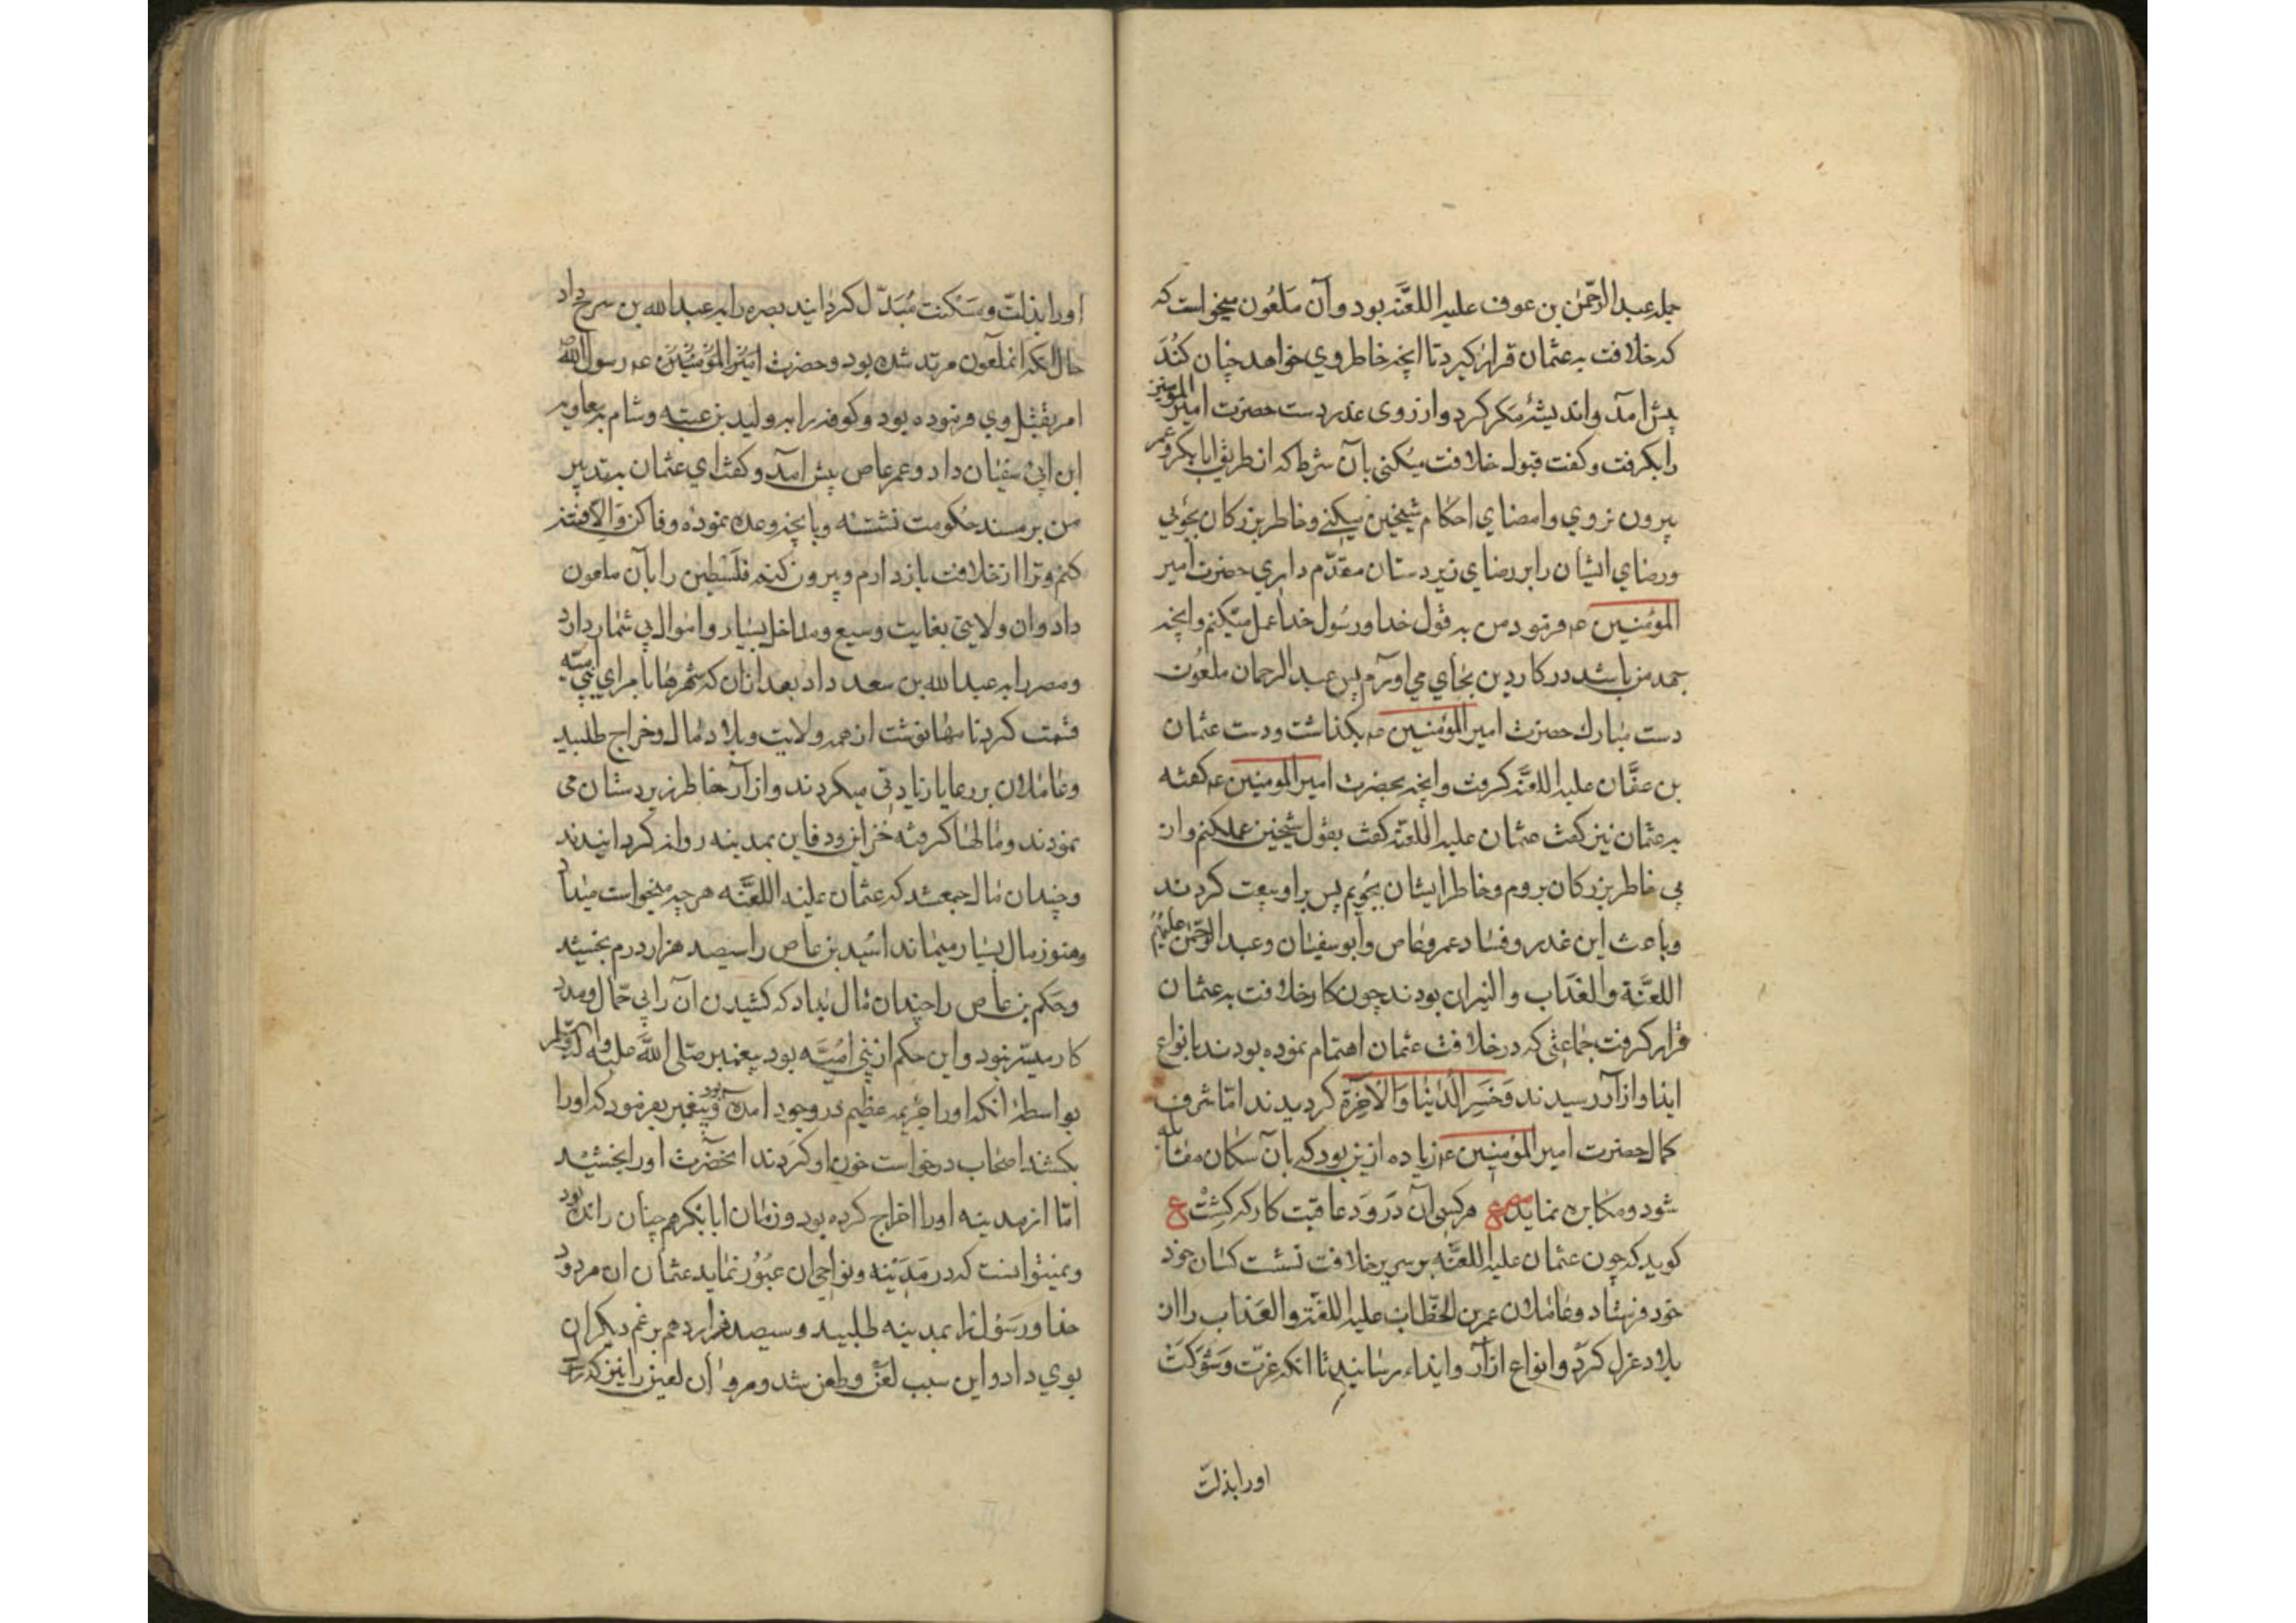 جمله عبدالرّحمن بن عوف علیه اللعنَه بود و آن ملعُون میخواست که
که خلافت به عثمان قرار کیرد تا انچه خاطر وي خواهد چنان کُندَ
پیش امد و اندیشهٔ مکر کرد و از روی غدر دست حضرت امیر المومنین
را بکرفت و کفت قبول خلافت میکنی بآن شرط که از طریق ابابکر و عمر
بیرون نروي و امضاي احکام شیخین میکنے و خاطر بزرکان بجوئي
و رضاي ایشان را بر رضاي زیردستان مقدّم داري حضرت امیر
المؤمنین عه فرمود من به قول خدا و رسُول خدا عمل میکنم و انچه
جهد من باشد در کار دین بجاي مي اورم پس عبدالرحمان ملعُون
دست مبارك حضرت امیرالمؤمنین عه بکذاشت و دست عثمان
بن عفّان علیه اللعنَه کرفت و انچه بحضرت امیرالمومنین عه کفته
به عثمان نیز کفت عثمان علیه اللعنَه کفت بقول شیخین عمل کنم و از
پي خاطر بزرکان بروم و خاطر ایشان بجُویم پس براو بیعت کردند
و باعث این غدر و فساد عمر و عاص و ابوسفیان و عبدالرّحمن علیهم
اللعنَة والعَذاب والنیران بودند چون کار خلافت به عثمان
قرار کرفت جماعتی که در خلافت عثمان اهتمام نموده بودند بانواع
ایذا و ازار رسیدند وَخَسِرَ الدُنیَا وَالاَخِرَة کردیدند امّا شرف
کمال حضرت امیرالمؤمنین عه زیاده ازین بود که بآن سکان مقابله
شود و مکابره نماید مصرع هرکسی آن دَرَوَد عاقبت کار که کِشْت ع
کوید که چون عثمان علیه اللعنَه بر سریر خلافت نشست کسان خود
خود فرستاد و عاملان عمر بن الخطّاب علیه اللعنَة والعَذاب را از
بلاد عزل کردّ و انواع ازار و ایذاء رسانید تا انکه عزّت و شَوکَت
اورا بذلتّ
اورا بذلتّ و مَسکَنت مُبَدّل کردانید بصره را به عبدالله بن سرح داد
حال انکه انملعون مرتد شده بود و حضرت امیرالمؤمنین عه و رسول الله
امر بقتل وي فرموده بود و کوفه را به ولید بن عتبه و شام بمعاویه
ابن ابي سفیان داد و عمرعاص پیش امد و کفت اي عثمان بتدبیر
من بر مسند حکومت نشسته و بانچه وعده نموده وفا کن و الا فتنه
کنم و ترا از خلافت بازدارم و بیرون کنم فلَسْطین را بآن ملعون
داد و ان ولایتی بغایت وسیع و مداخل بسیار و اموال بي شمار دارد
و مصر را به عبدالله بن سعد داد بعد ازان که شهرها بامراي بني امیّه
قسمت کرد نامها نوشت از همه ولایت و بلاد مال و خراج طلبید
و عاملان بر رعایا زیادتي میکردند و ازار خاطر زیردستان می
نمودند و مالها کرفته خزاین و دفاین بمدینه روانه کردانیدند
و چندان مال جمع شد که عثمان علیه اللعنَه هر چه میخواست میداد
و هنوز مال بسیار میماند اسُید بن عاص را سیصد هزار درم بخشید
و حَکم بن عاص را چندان مال بداد که کشیدن آن را بي حمّال و مدد
کار میسّر نبود و این حکم از بني امُیَّه بود پیغمبر صلی اللّه علیه و اله وسلم
بواسطهٔ انکه اورا جریمه عظیم در وجود امده بود پیغمبر بفرمود که اورا
بکشند اصحاب درخواست خون او کردند انحضرت اورا بخشید
امّا از مدینه اورا اخراج کرده بود و زمان ابابکر هم چنان رانده بود
و نمیتوانست که در مَدینه و نواحی ان عبُور نماید عثمان ان مردود
خدا و رسُول را بمدینه طلبید و سیصد هزار درهم برغم دیکران
بوي داد و این سبب لعن و طعن شد و مروان لعین را نیز که